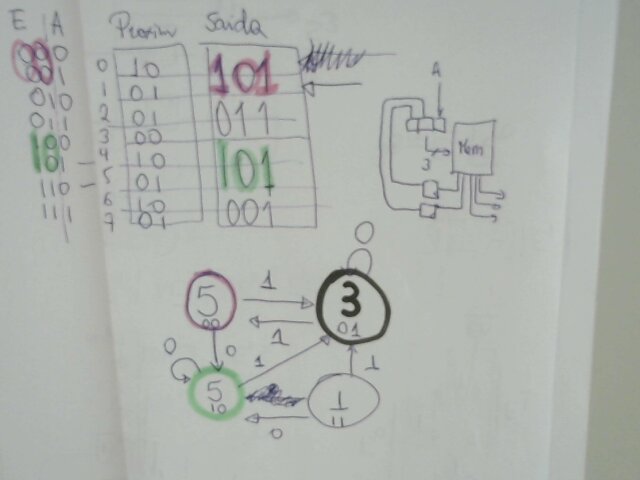 E A Proximo Saida
00 0 0 10 101
00 1 1 01
01 0 2 01 011
01 1 3 00
10 0 4 10 101
10 1 5 01
11 0 6 10 001
11 1 7 01
A
3
Mem
0
5 1 3
00 1 01
0 0 1 1
5 1
10 11
0